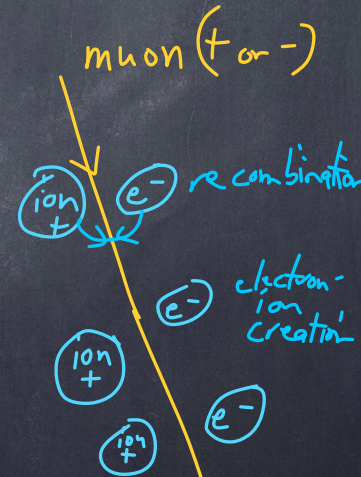 muon (+ or -)
ion
+
e-
recombination
e-
electron-
ion
creation
ion
+
e-
ion
+